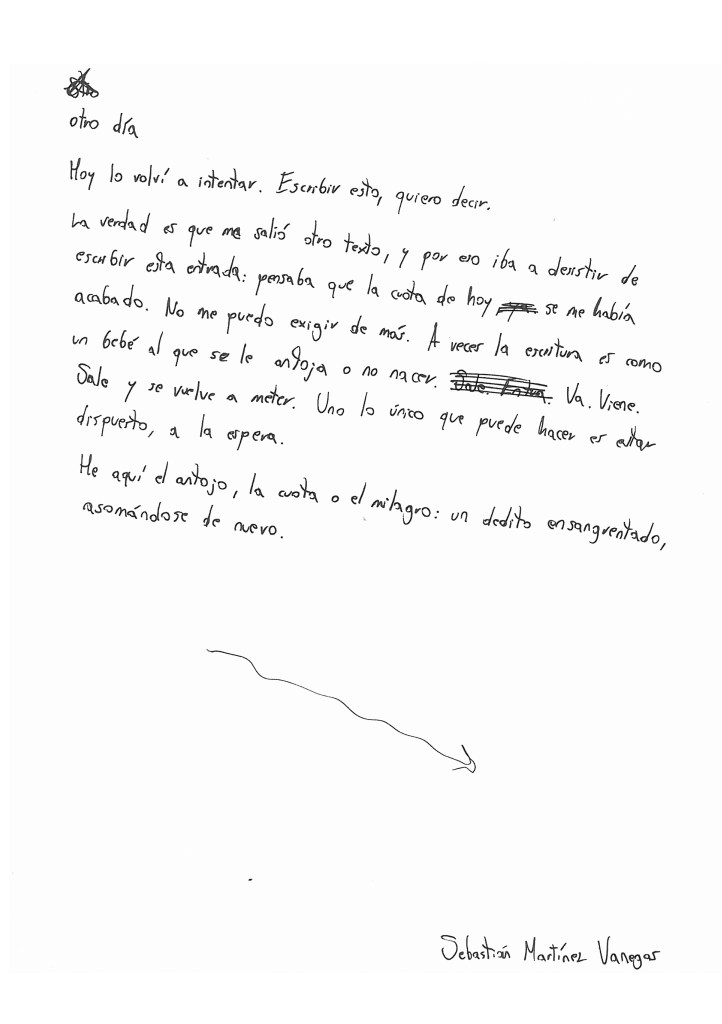 otro día
Hoy lo volví a intentar. Escribir esto, quiero decir.
La verdad es que me salió otro texto, y por eso iba a desistir de
escribir esta entrada: pensaba que la cuota de hoy se me había
acabado. No me puedo exigir de más. A veces la escritura es como
un bebé al que se le antoja o no nacer. Sale. Entra. Va. Viene.
Sale y se vuelve a meter. Uno lo único que puede hacer es estar
dispuesto, a la espera.
He aquí el antojo, la cuota o el milagro: un dedito ensangrentado,
asomándose de nuevo.
Sebastián Martínez Vanegas